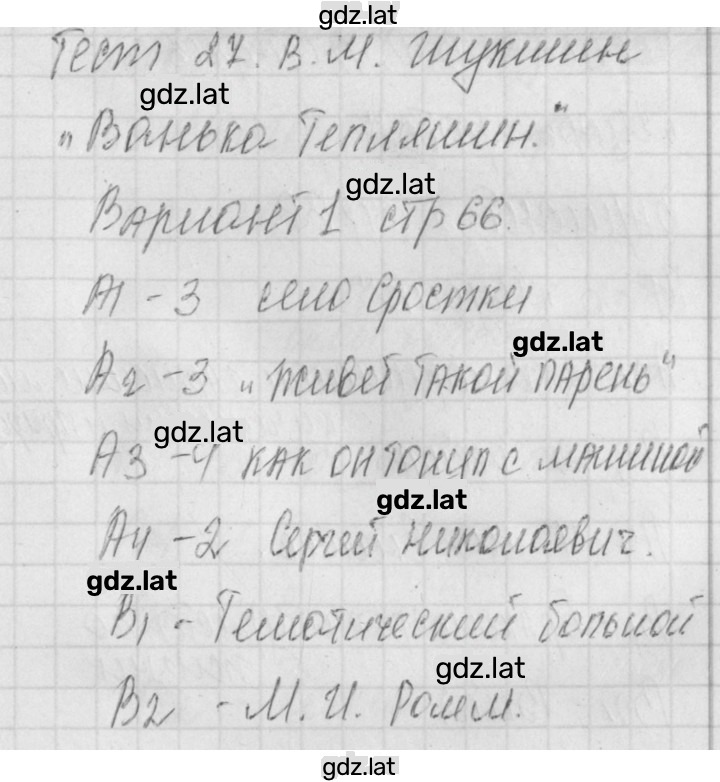 gdz.lat
Тест 27. В. М. Шукшин
gdz.lat
„Ванька Тепляшин."
gdz.lat
Вариант 1 стр 66.
А1 - 3 село Сростки
gdz.lat
А2 - 3 „Живет такой парень"
gdz.lat
А3 - 4 как он тонул с машиной
gdz.lat
А4 - 2 Сергей Николаевич.
gdz.lat
В1 - Тематический больной
gdz.lat
В2 - М. И. Ромм.
gdz.lat